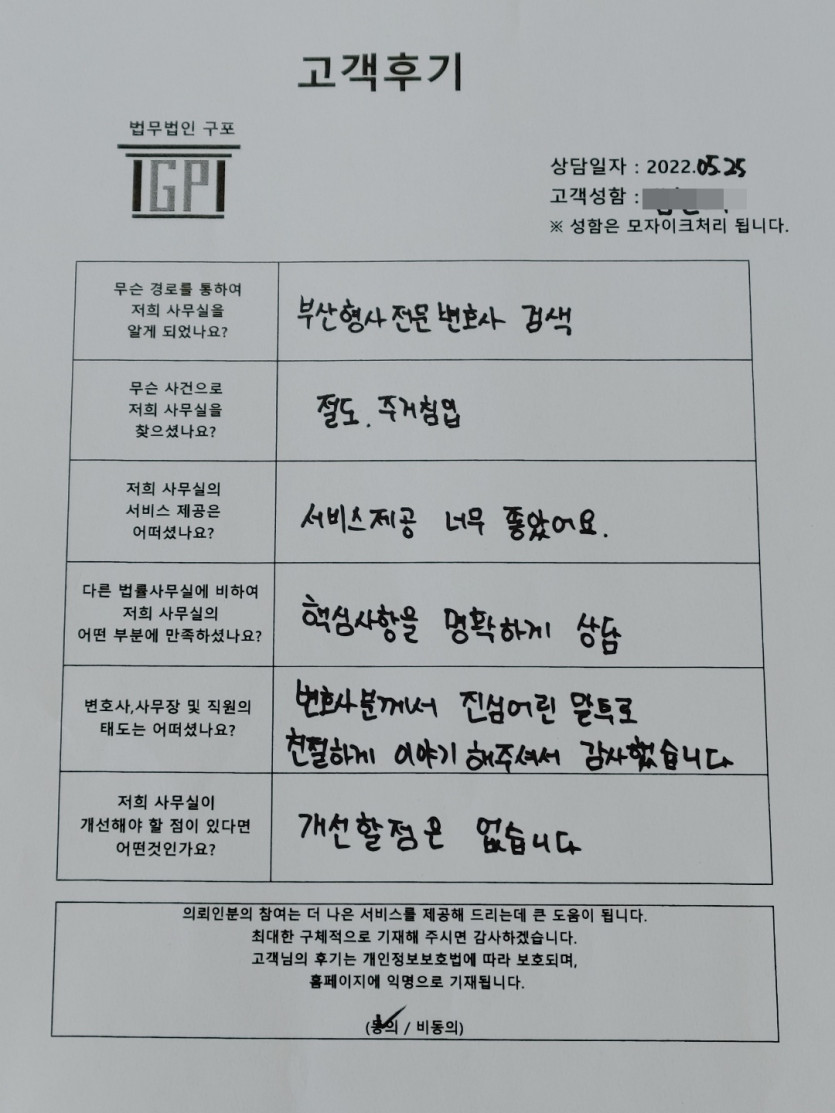 고객후기
법무법인 구포
GP
상담일자 : 2022.05.25
고객성함 :
※ 성함은 모자이크처리 됩니다.
무슨 경로를 통하여
저희 사무실을
알게 되었나요?
부산형사전문변호사 검색
무슨 사건으로
저희 사무실을
찾으셨나요?
절도. 주거침입
저희 사무실의
서비스 제공은
어떠셨나요?
서비스제공 너무 좋았어요.
다른 법률사무실에 비하여
저희 사무실의
어떤 부분에 만족하셨나요?
핵심사항을 명확하게 상담
변호사,사무장 및 직원의
태도는 어떠셨나요?
변호사분께서 진심어린 말투로
친절하게 이야기 해주셔서 감사했습니다
저희 사무실이
개선해야 할 점이 있다면
어떤것인가요?
개선할점은 없습니다
의뢰인분의 참여는 더 나은 서비스를 제공해 드리는데 큰 도움이 됩니다.
최대한 구체적으로 기재해 주시면 감사하겠습니다.
고객님의 후기는 개인정보보호법에 따라 보호되며,
홈페이지에 익명으로 기재됩니다.
(동의 / 비동의)